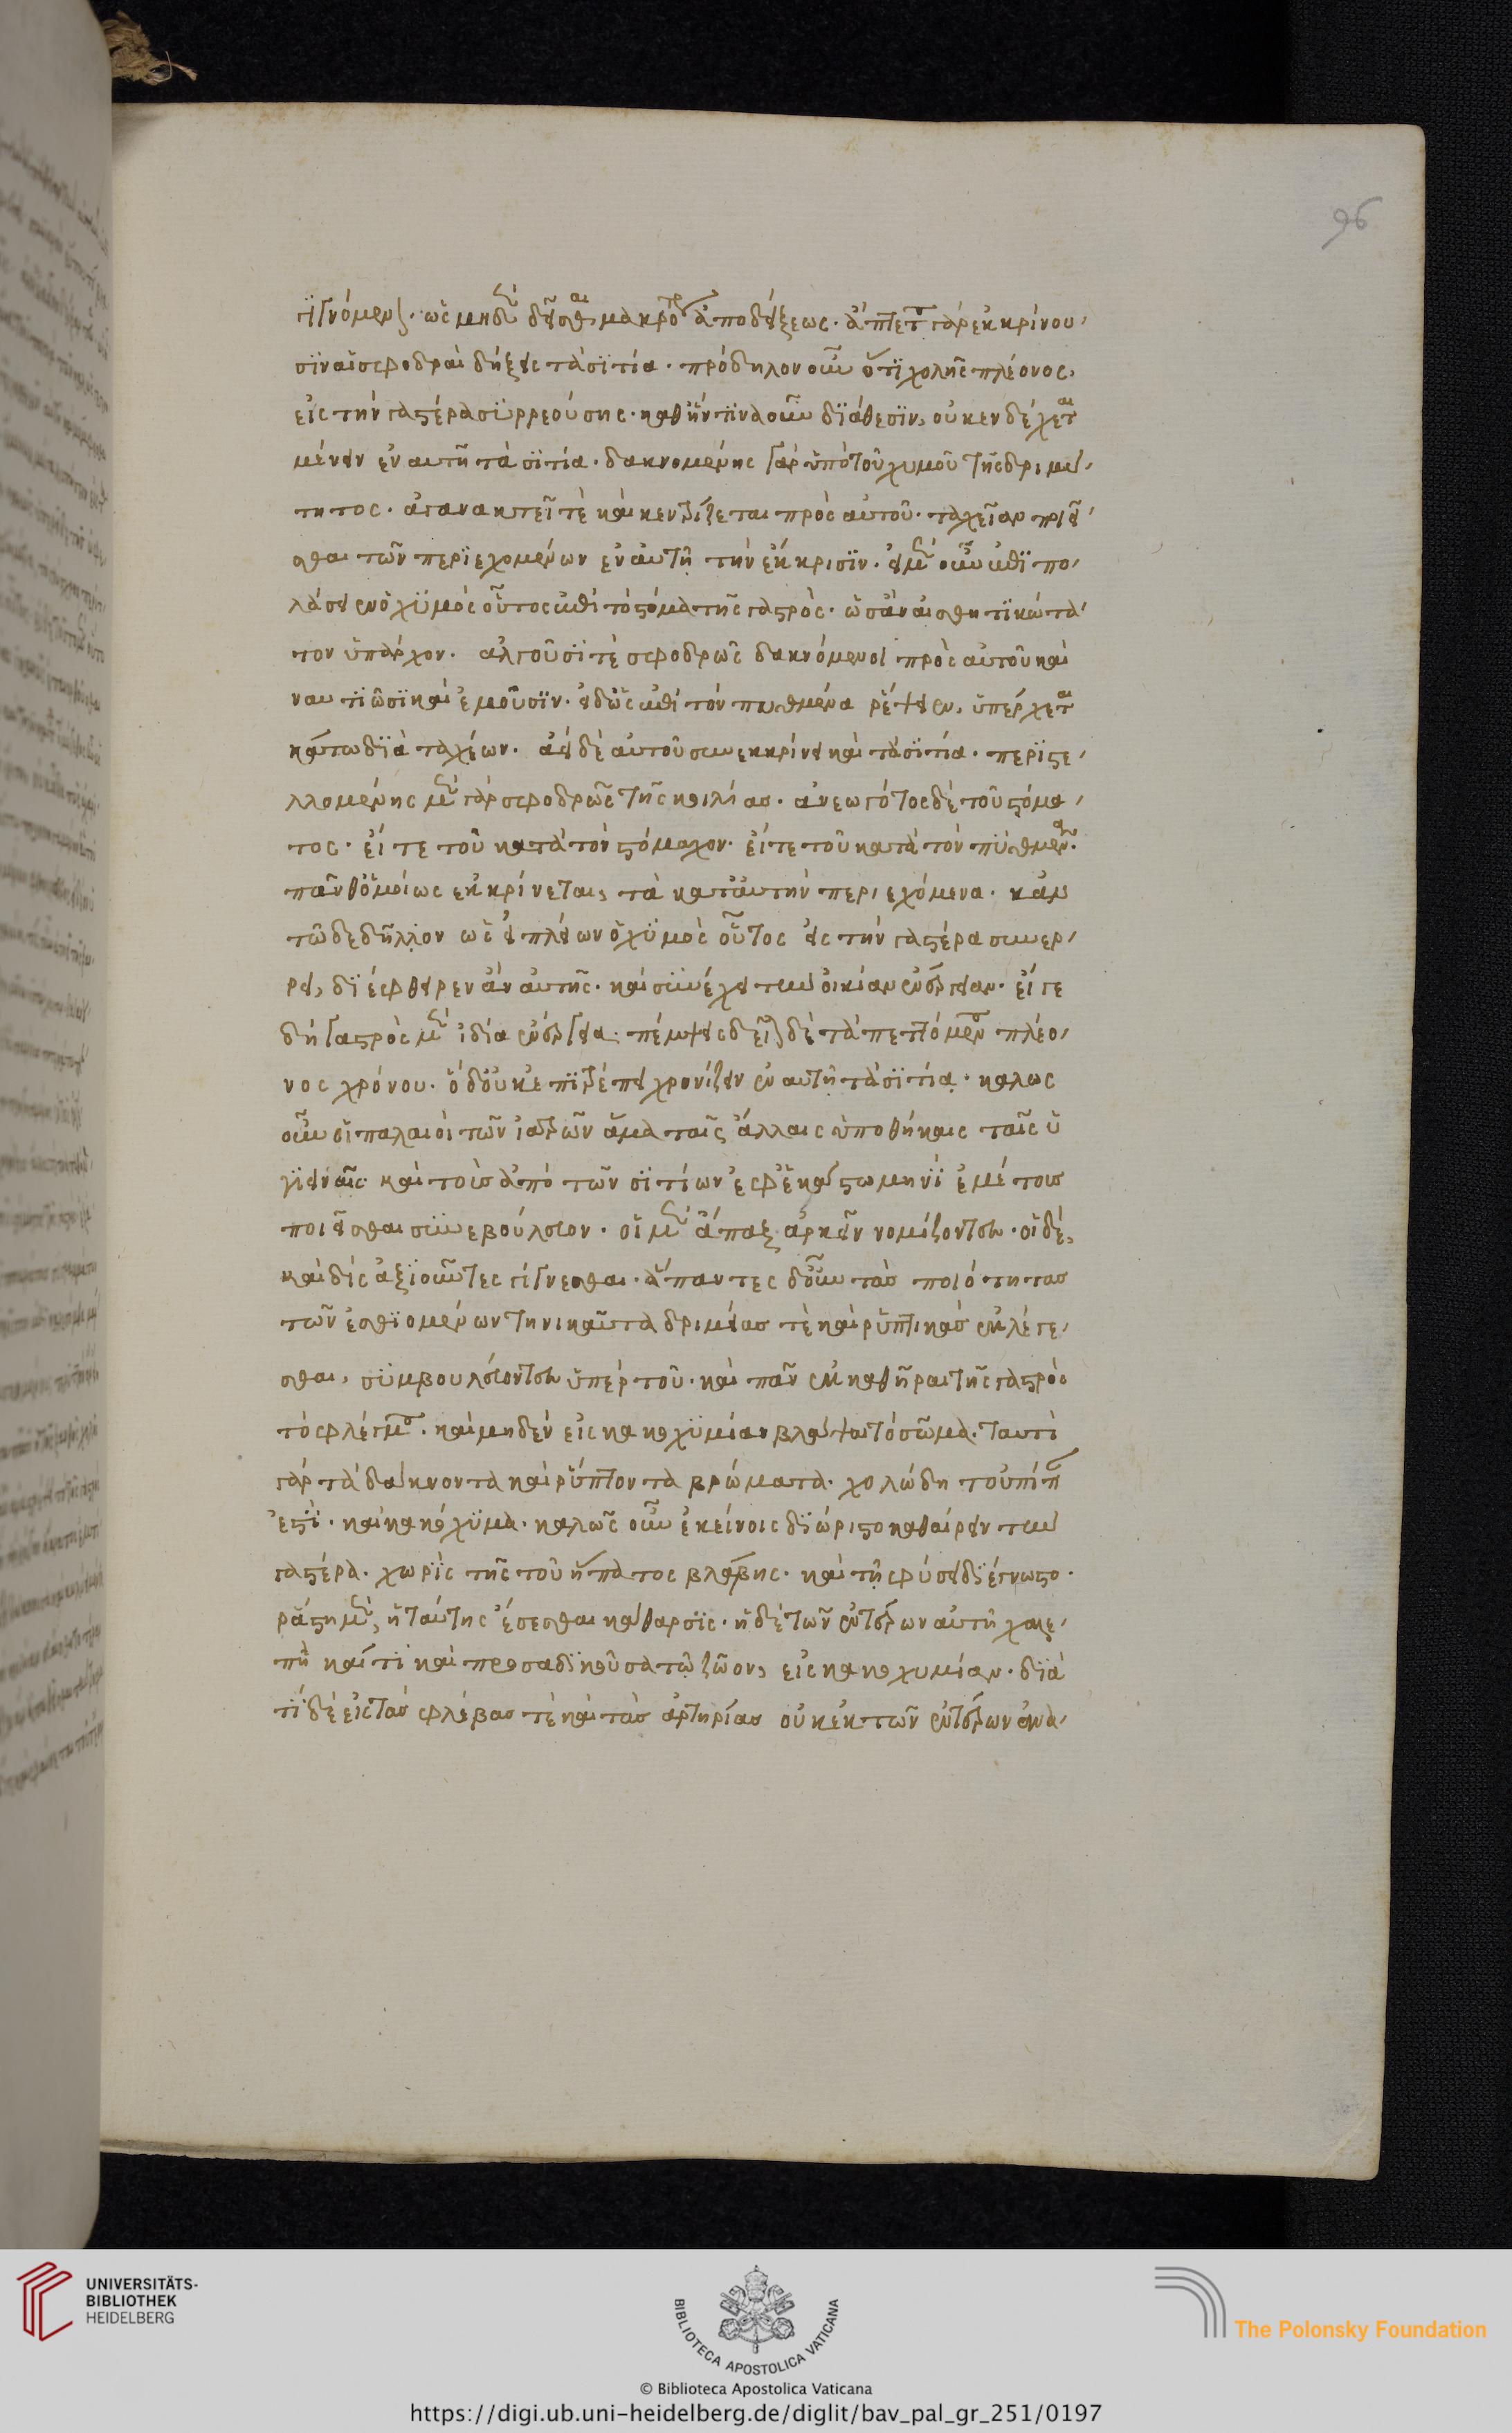 96
γιγνόμενον· ὡς μηδὲν δεῖσθαι μακροτέρας ἀποδείξεως. ἅπερ τὸ γὰρ ἐκκρίνου
σιν αἱ σφοδραὶ δήξεις τὰ σιτία. πρόδηλον οὖν ὅτι χολῆς πλέονος,
εἰς τὴν γαστέρα συρρεούσης. καθ' ἥν τινα οὖν διάθεσιν, οὐκ ενδέχεται
μένειν ἐν αυτῆ τὰ σιτία. δακνομένης γὰρ ὑπὸ τοῦ χυμοῦ τῆς δριμύ
τητος. ἀγανακτεῖ τὲ καὶ κεντρίζεται πρὸς αὐτοῦ. ταχεῖαν ποιεῖ
σθαι τῶν περιεχομένων ἐν ἀυτῆ τὴν ἔκκρισιν. εἰ μὲν οὖν ἐπιπο
λάσειεν ὁ χυμὸς οὗτος ἐπὶ τὸ στόμα τῆς γαστρὸς. ὡσὰν αἰσθητικώτα
τον ὑπάρχον. αλγοῦσί τὲ σφοδρῶς δακνόμενοι πρὸς αὐτοῦ καὶ
ναυτιῶσι καὶ ἐμοῦσιν. εἰ δ' ὡς ἐπὶ τὸν πυθμένα ρέψειεν, ὑπέρχεται
κάτω διὰ ταχέων. ἀεὶ δὲ αὐτοῦ συνεκκρίνει καὶ τὰ σιτία. περιστε
λλομένης μὲν γὰρ σφοδρῶς τῆς κοιλίας. ἀνεωγότος δὲ τοῦ στόμα
τος. εἴτε τοῦ κατὰ τὸν στόμαχον. εἴτε τοῦ κατὰ τὸν πυθμένα.
πᾶνθ' ὁμοίως εκκρίνεται, τὰ κατ' ἀυτὴν περιεχόμενα. κἀν
τῶδε δῆλον ὡς εἰ πλείων ὁ χυμὸς οὗτος εἰς τὴν γαστέρα συνερ
ρει, διέφθειρεν ἂν ἀυτῆς. καὶ συνέχει τὴν οἰκίαν ἐνέργειαν. εἴγε
δὴ γαστρὸς μὲν ἰδία ἐνέργεια. πέμψεις δεῖται δὲ τὰ πεττόμενα πλέο
νος χρόνου. ὁ δ' οὐκ επιτρέπει χρονίζειν ἐν αυτῆ τὰ σιτία. καλως
οὖν οἱ παλαιοὶ τῶν ἰατρῶν ἅμα ταῖς ἄλλαις ὑποθήκαις ταῖς ὑ
γιειναῖς καὶ τοὺς ἀπὸ τῶν σιτίων ἐφ' ἑκάστω μηνὶ ἐμέτους
ποιεῖσθαι συνεβούλευον. οἱ μὲν ἅπαξ ἀρκεῖν νομίζοντες. οἱ δὲ,
καὶ δὶς ἀξιοῦντες γίγνεσθαι. ἅπαντες δ' οὖν τὰς ποιότητας
τῶν ἐσθιομένων τηνικαῦτα δριμείας τὲ καὶ ρυπτικὰς ἐκλέγε
σθαι, συμβουλεύοντες ὑπὲρ τοῦ. καὶ πᾶν ἐκκαθῆραι τῆς γαστρὸς
τὸ φλέγμα. καὶ μηδὲν εἰς κακοχυμίαν βλάψαι τὸ σῶμα. ταυτὶ
γὰρ τὰ δάκνοντα καὶ ρύπτοντα βρώματα. χολώδη τοὐπίπαν
ἐστὶ. καὶ κακόχυμα. καλῶς οὖν ἐκείνοις διώριστο καθαίρειν τὴν
γαστέρα. χωρὶς τῆς τοῦ ἥπατος βλάβης. καὶ τῆ φύσει διέγνωστο.
ράστη μὲν, ἡ ταύτης ἔσεσθαι κάθαρσις. ἡ δὲ τῶν ἐντέρων αὐτὴ χαλε
πὴ κάτι καὶ προσαδικοῦσα τῶ ζῶον, εἰς κακοχυμίαν. διὰ
τί δὲ εἰς τὰς φλέβας τὲ καὶ τὰς ἀρτηρίας οὐκ ἐκ τῶν ἐντέρων ἀνα
UNIVERSITÄTS-
BIBLIOTHEK
HEIDELBERG
BIBLIOTECA APOSTOLICA VATICANA
The Polonsky Foundation
© Biblioteca Apostolica Vaticana
https://digi.ub.uni-heidelberg.de/diglit/bav_pal_gr_251/0197